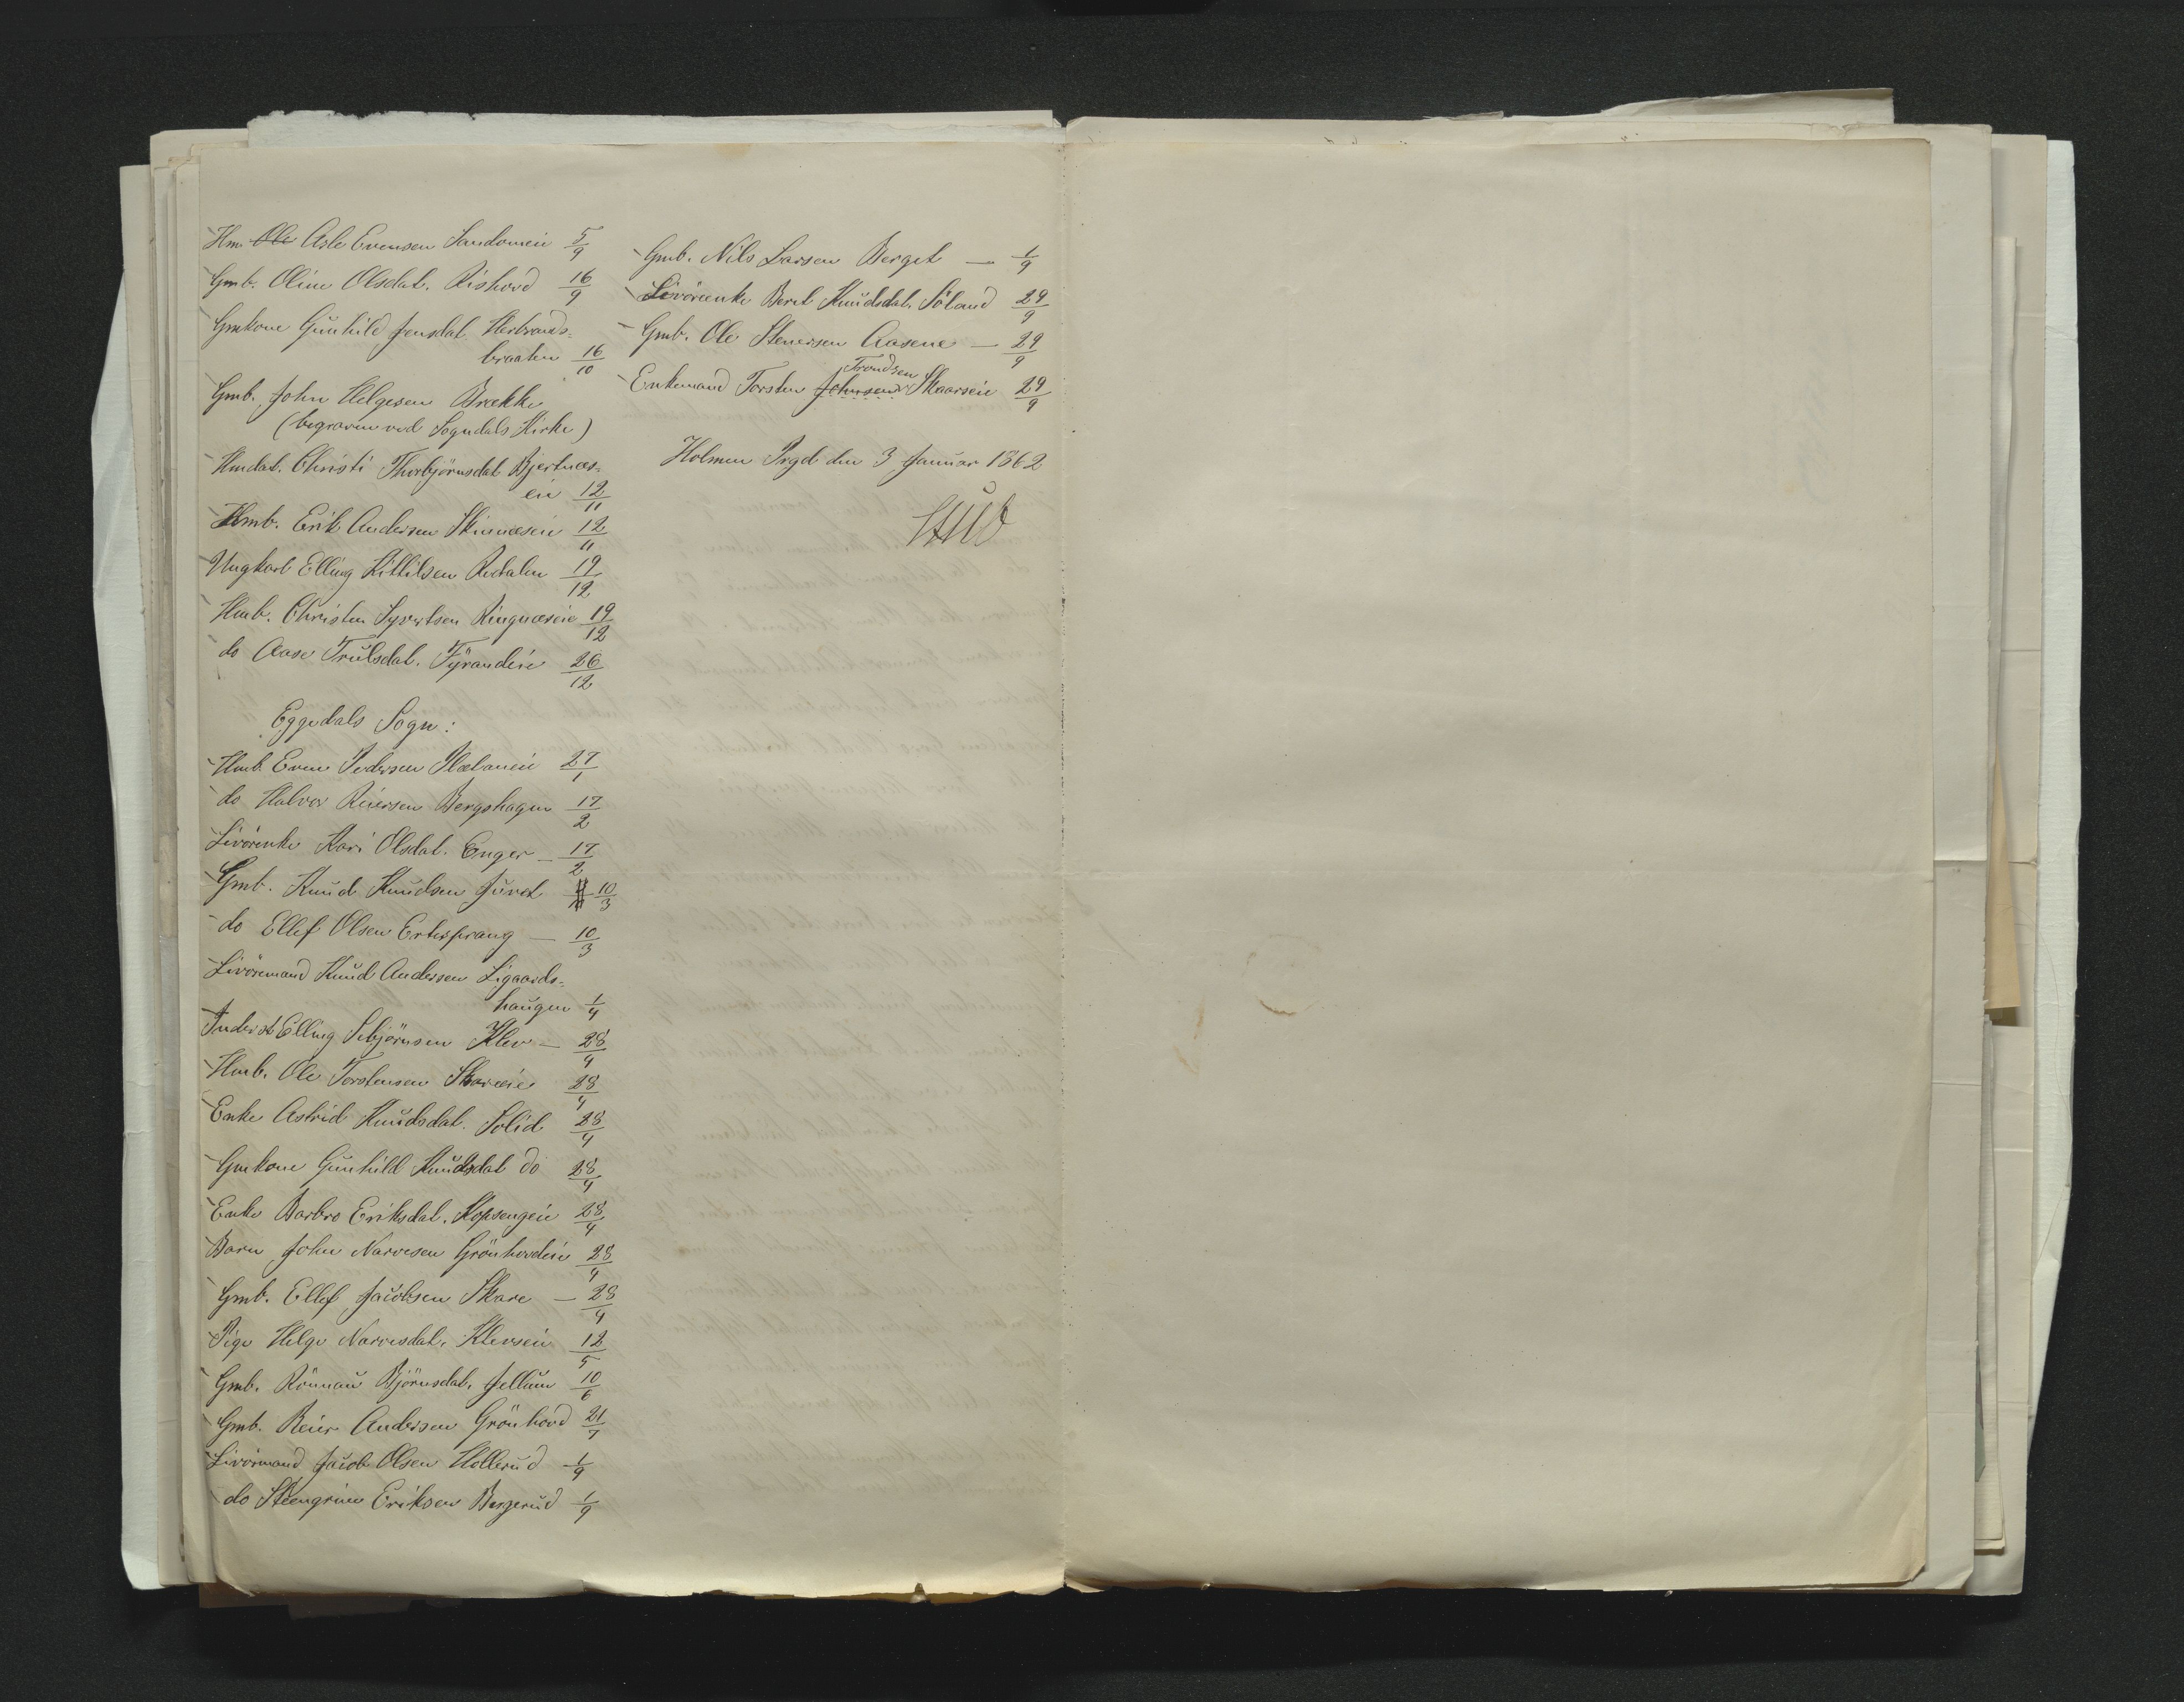 Hm. Ole Asle Evensen Sandomeie 5/9
Gmb. Oline Olsdat. Rishovd 16/9
Gmkone Gunhild Jensdat Herbrands-
braaten 16/10
Gmb. John Helgesen Brække
(begraven ved Sogndals Kirke)
Hmdat. Christi Thorbjörnsdat Bjertnæs-
eie 12/11
Hmb. Erik Andersen Skinnæseie 12/11
Ungkarl Elling Kittilsen Redalen 19/12
Hmb. Christen Syvertsen Ringnæseie 19/12
do Aase Trulsdat. Fyrandeie 26/12
Eggedals Sogn:
Hmb. Even Pedersen 27/1
do Halvor Reiersen Bergshagen 17/2
Livörenke Kari Olsdat. Enger - 17/2
Gmb. Knud Knudsen Juvet 10/3
do Ellef Olsen Ertesprang - 10/3
Livöremand Knud Andersen Ligaards-
haugen 1/4
Inderst Elling Sebjörnsen Klev - 28/4
Hmb. Ole Torstensen Skareeie 28/4
Enke Astrid Knudsdat. Solid 28/4
Gmkone Gunhild Knudsdat do 28/4
Enke Barbro Eriksdat. Kopsengeie 28/4
Barn John Narvesen Grönhovdeie 28/4
Gmb. Ellef Jacobsen Skare - 28/4
Pige Helge Narvesdat. Klevseie 12/5
Gmb. Rönnau Björnsdat. Jellum 10/6
Gmb. Reier Andersen Grönhovd 21/7
Livörmand Jacob Olsen Hollerud 1/9
do Steengrim Eriksen Bergerud 1/9
Gmb. Nils Larsen Berget - 1/9
Livöreenke Beret Knudsdat. Söland 29/9
Gmb. Ole Stenersen Aasene - 29/9
Trondsen
Enkemand Torsten Johnsen Skaarseie 29/9
Holmen Prgd den 3 Januar 1862
Stub